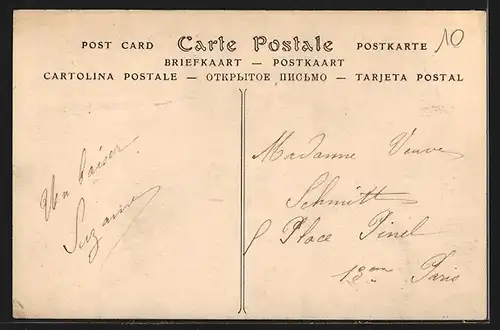 POST CARD Carte Postale POSTKARTE
BRIEFKAART — POSTKAART
CARTOLINA POSTALE — ОТКРЫТОЕ ПИСЬМО — TARJETA POSTAL
10
Un baiser
Suzanne
Madame Veuve
Schmitt
Place Pinel
13eme Paris